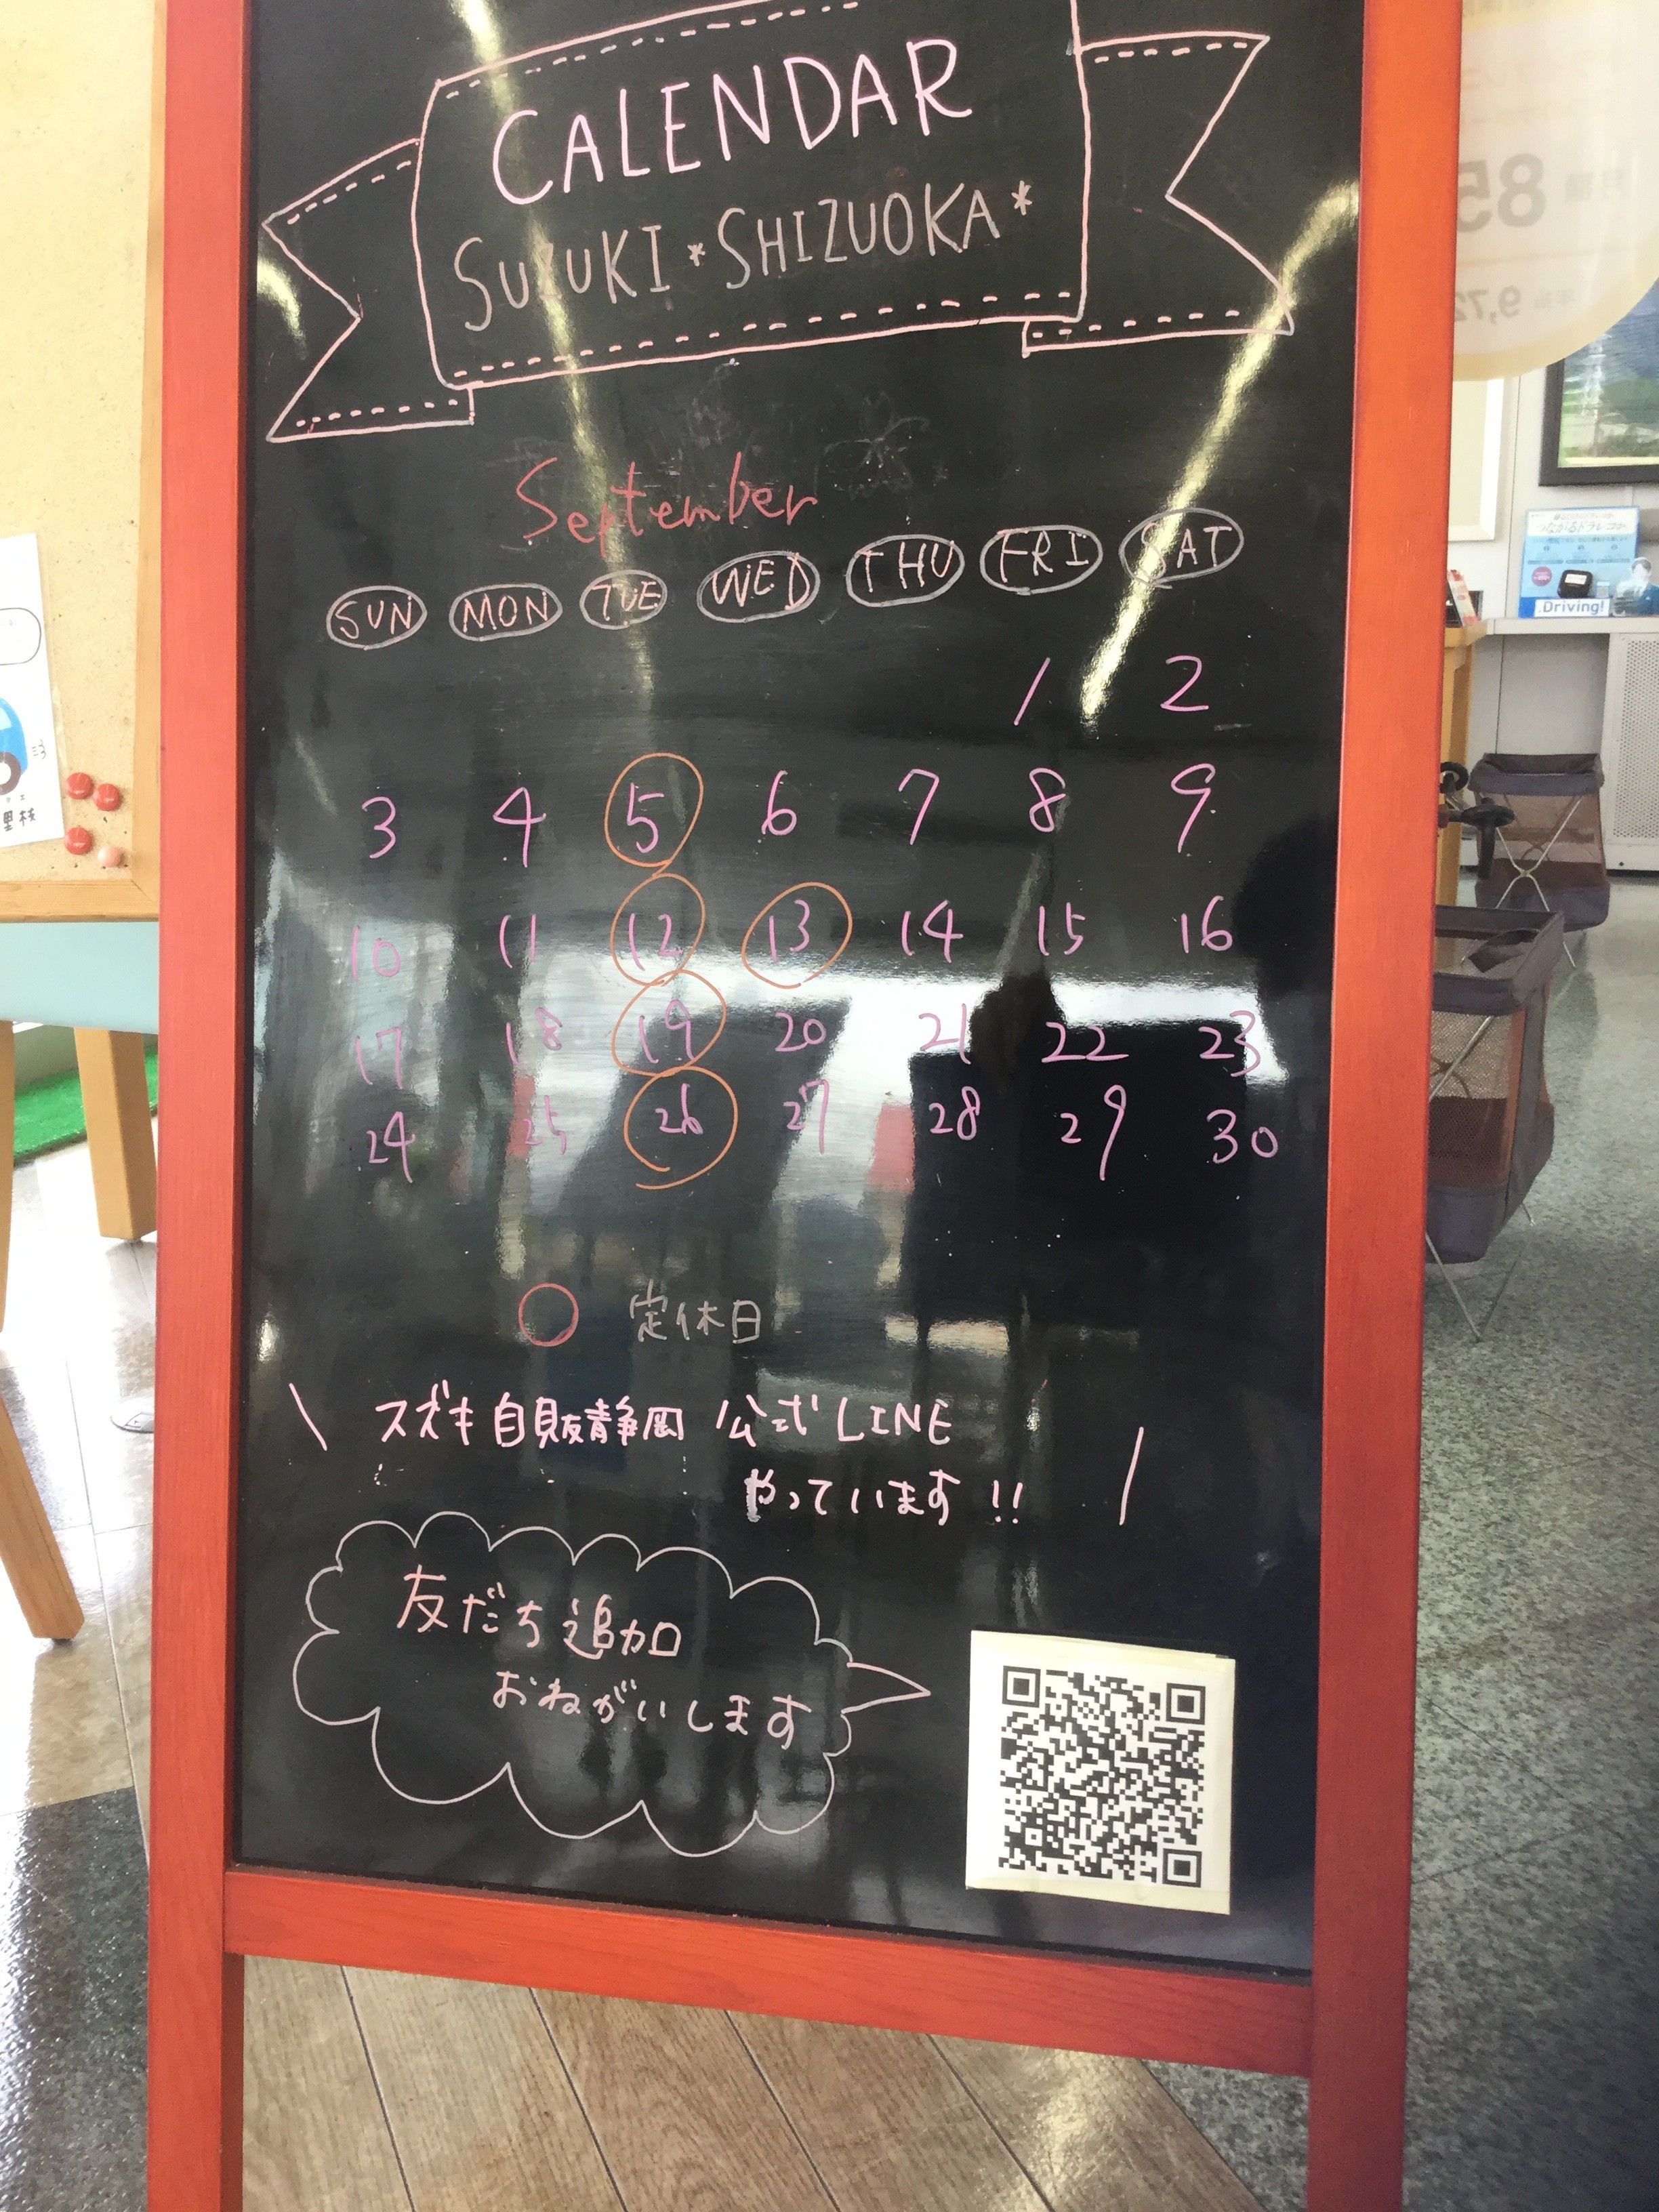 CALENDAR
SUZUKI*SHIZUOKA*
September
SUN MON TUE WED THU FRI SAT
1 2
3 4 5 6 7 8 9
10 11 12 13 14 15 16
17 18 19 20 21 22 23
24 25 26 27 28 29 30
○ 定休日
\ スズキ自販静岡 公式LINE
やっています!! /
友だち追加
おねがいします
85
9,72
つながるドラレコ
.Driving!
里枝